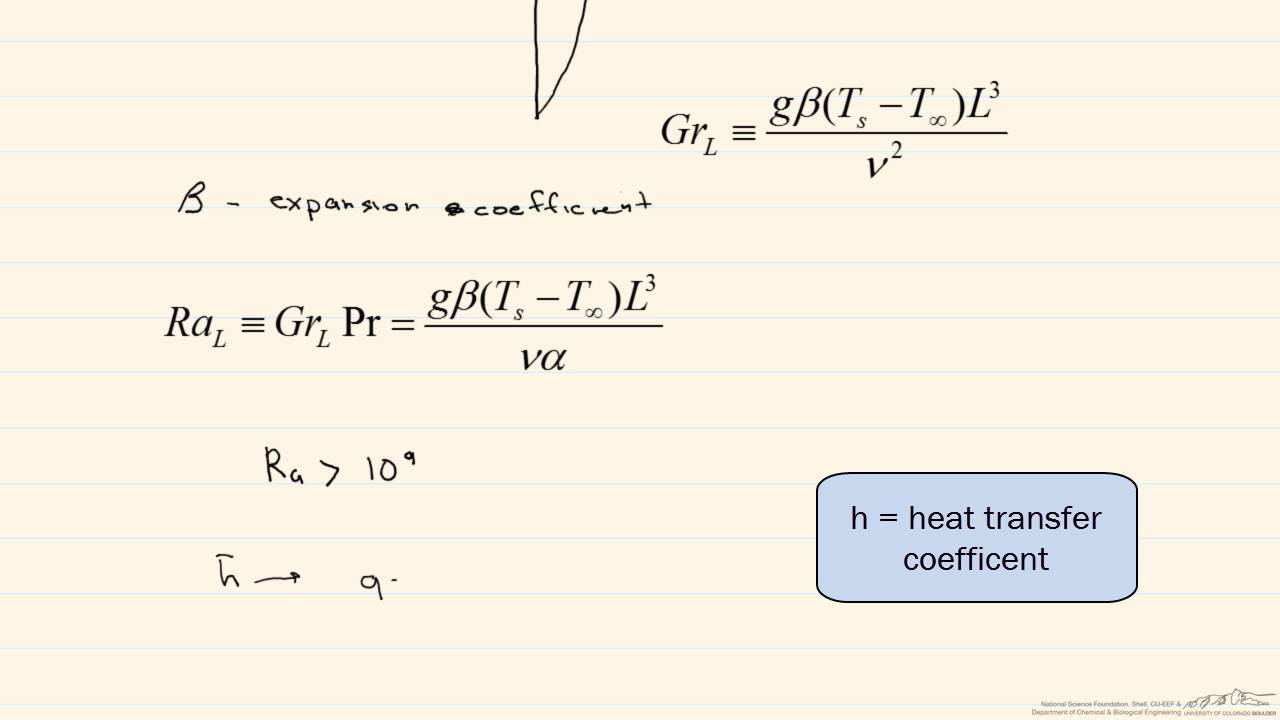 Gr_L ≡ gβ(T_s − T_∞)L³ / ν²
β - expansion coefficient
Ra_L ≡ Gr_L Pr = gβ(T_s − T_∞)L³ / να
Ra > 10⁹
h̄ → q
h = heat transfer
coefficent
National Science Foundation, Shell, CU-EEF &
Department of Chemical & Biological Engineering UNIVERSITY OF COLORADO BOULDER